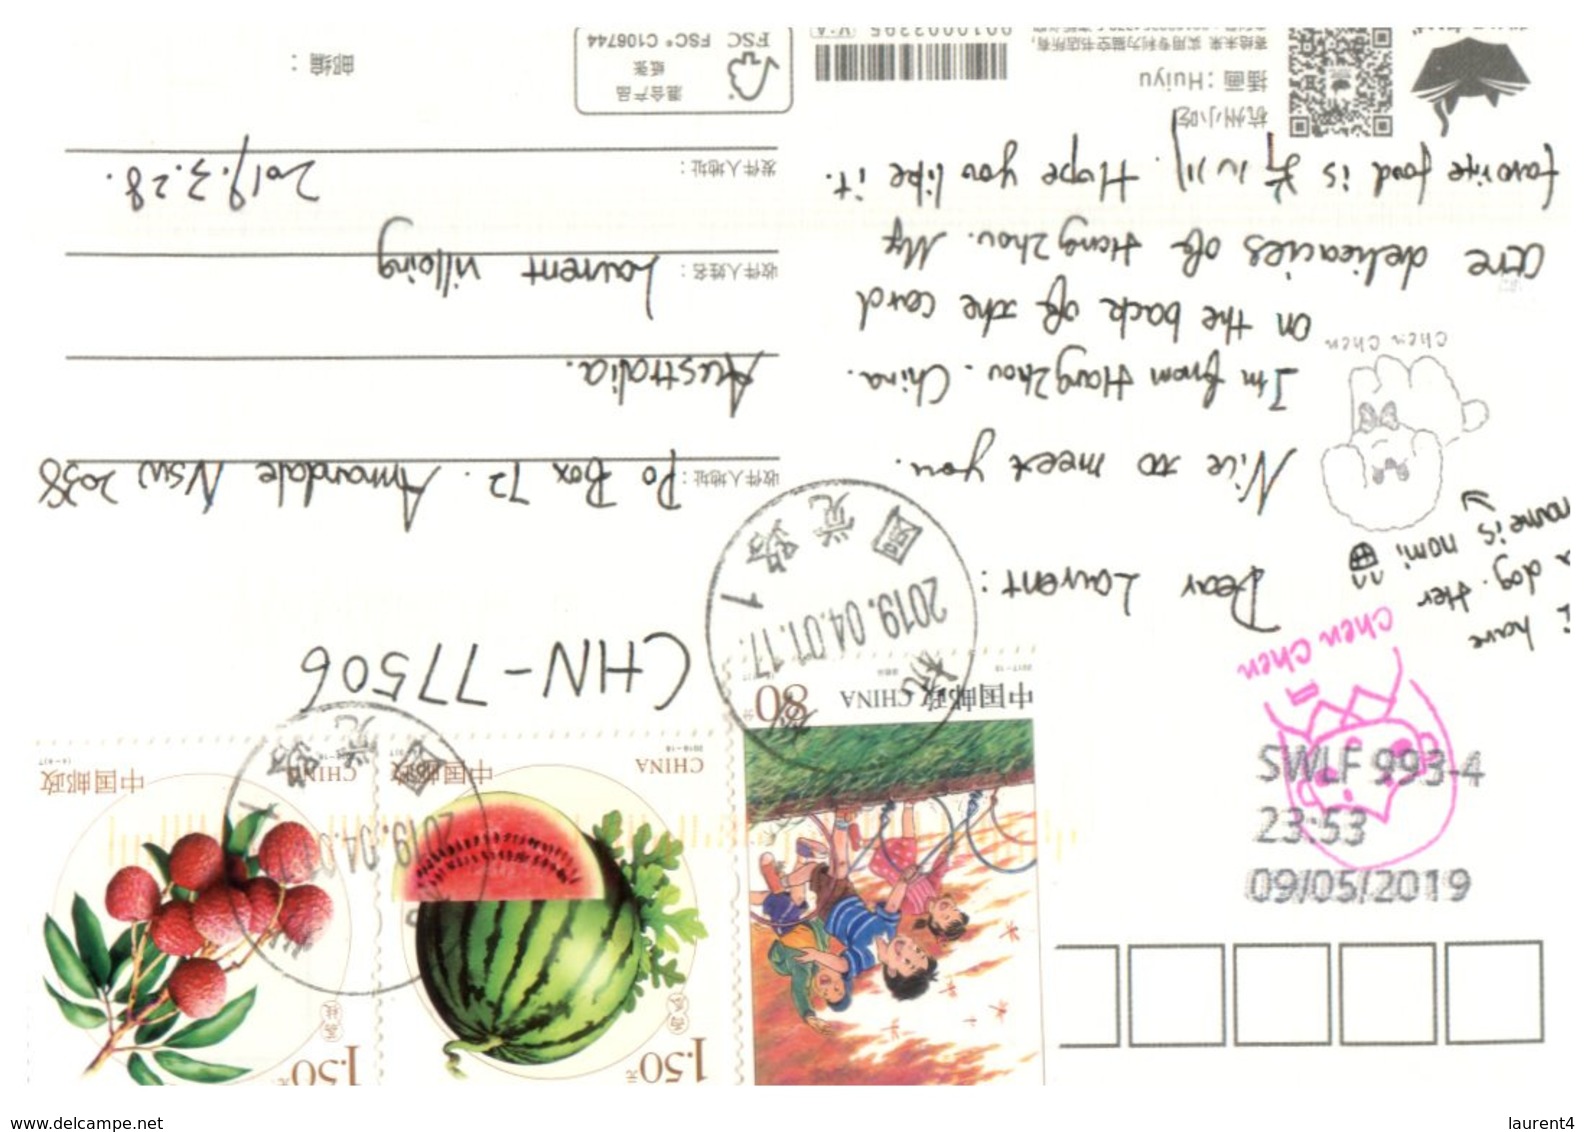 SWLF 993-4
23:53
09/05/2019
Chen Chen
i have
a dog. Her
name is nomi
Chen Chen
Dear Laurent:
Nice to meet you.
I'm from HangZhou. China.
on the back of the card
are delicacies of HangZhou. My
favorite food is 片儿川. Hope you like it.
杭州小吃
插画：Huiyu
CHN-77506
收件人地址：
Po Box 72. Annandale NSW 2038
Australia.
收件人姓名：
Laurent villoing
发件人地址：
2019.3.28.
邮编：
混合产品
纸张
FSC® C106744
FSC
中国邮政 CHINA
80
分
2017-13
1.50元
西瓜
CHINA
中国邮政
2016-18
1.50元
荔枝
CHINA
中国邮政
2019.04.01.17
2019.04.0
www.delcampe.net
laurent4